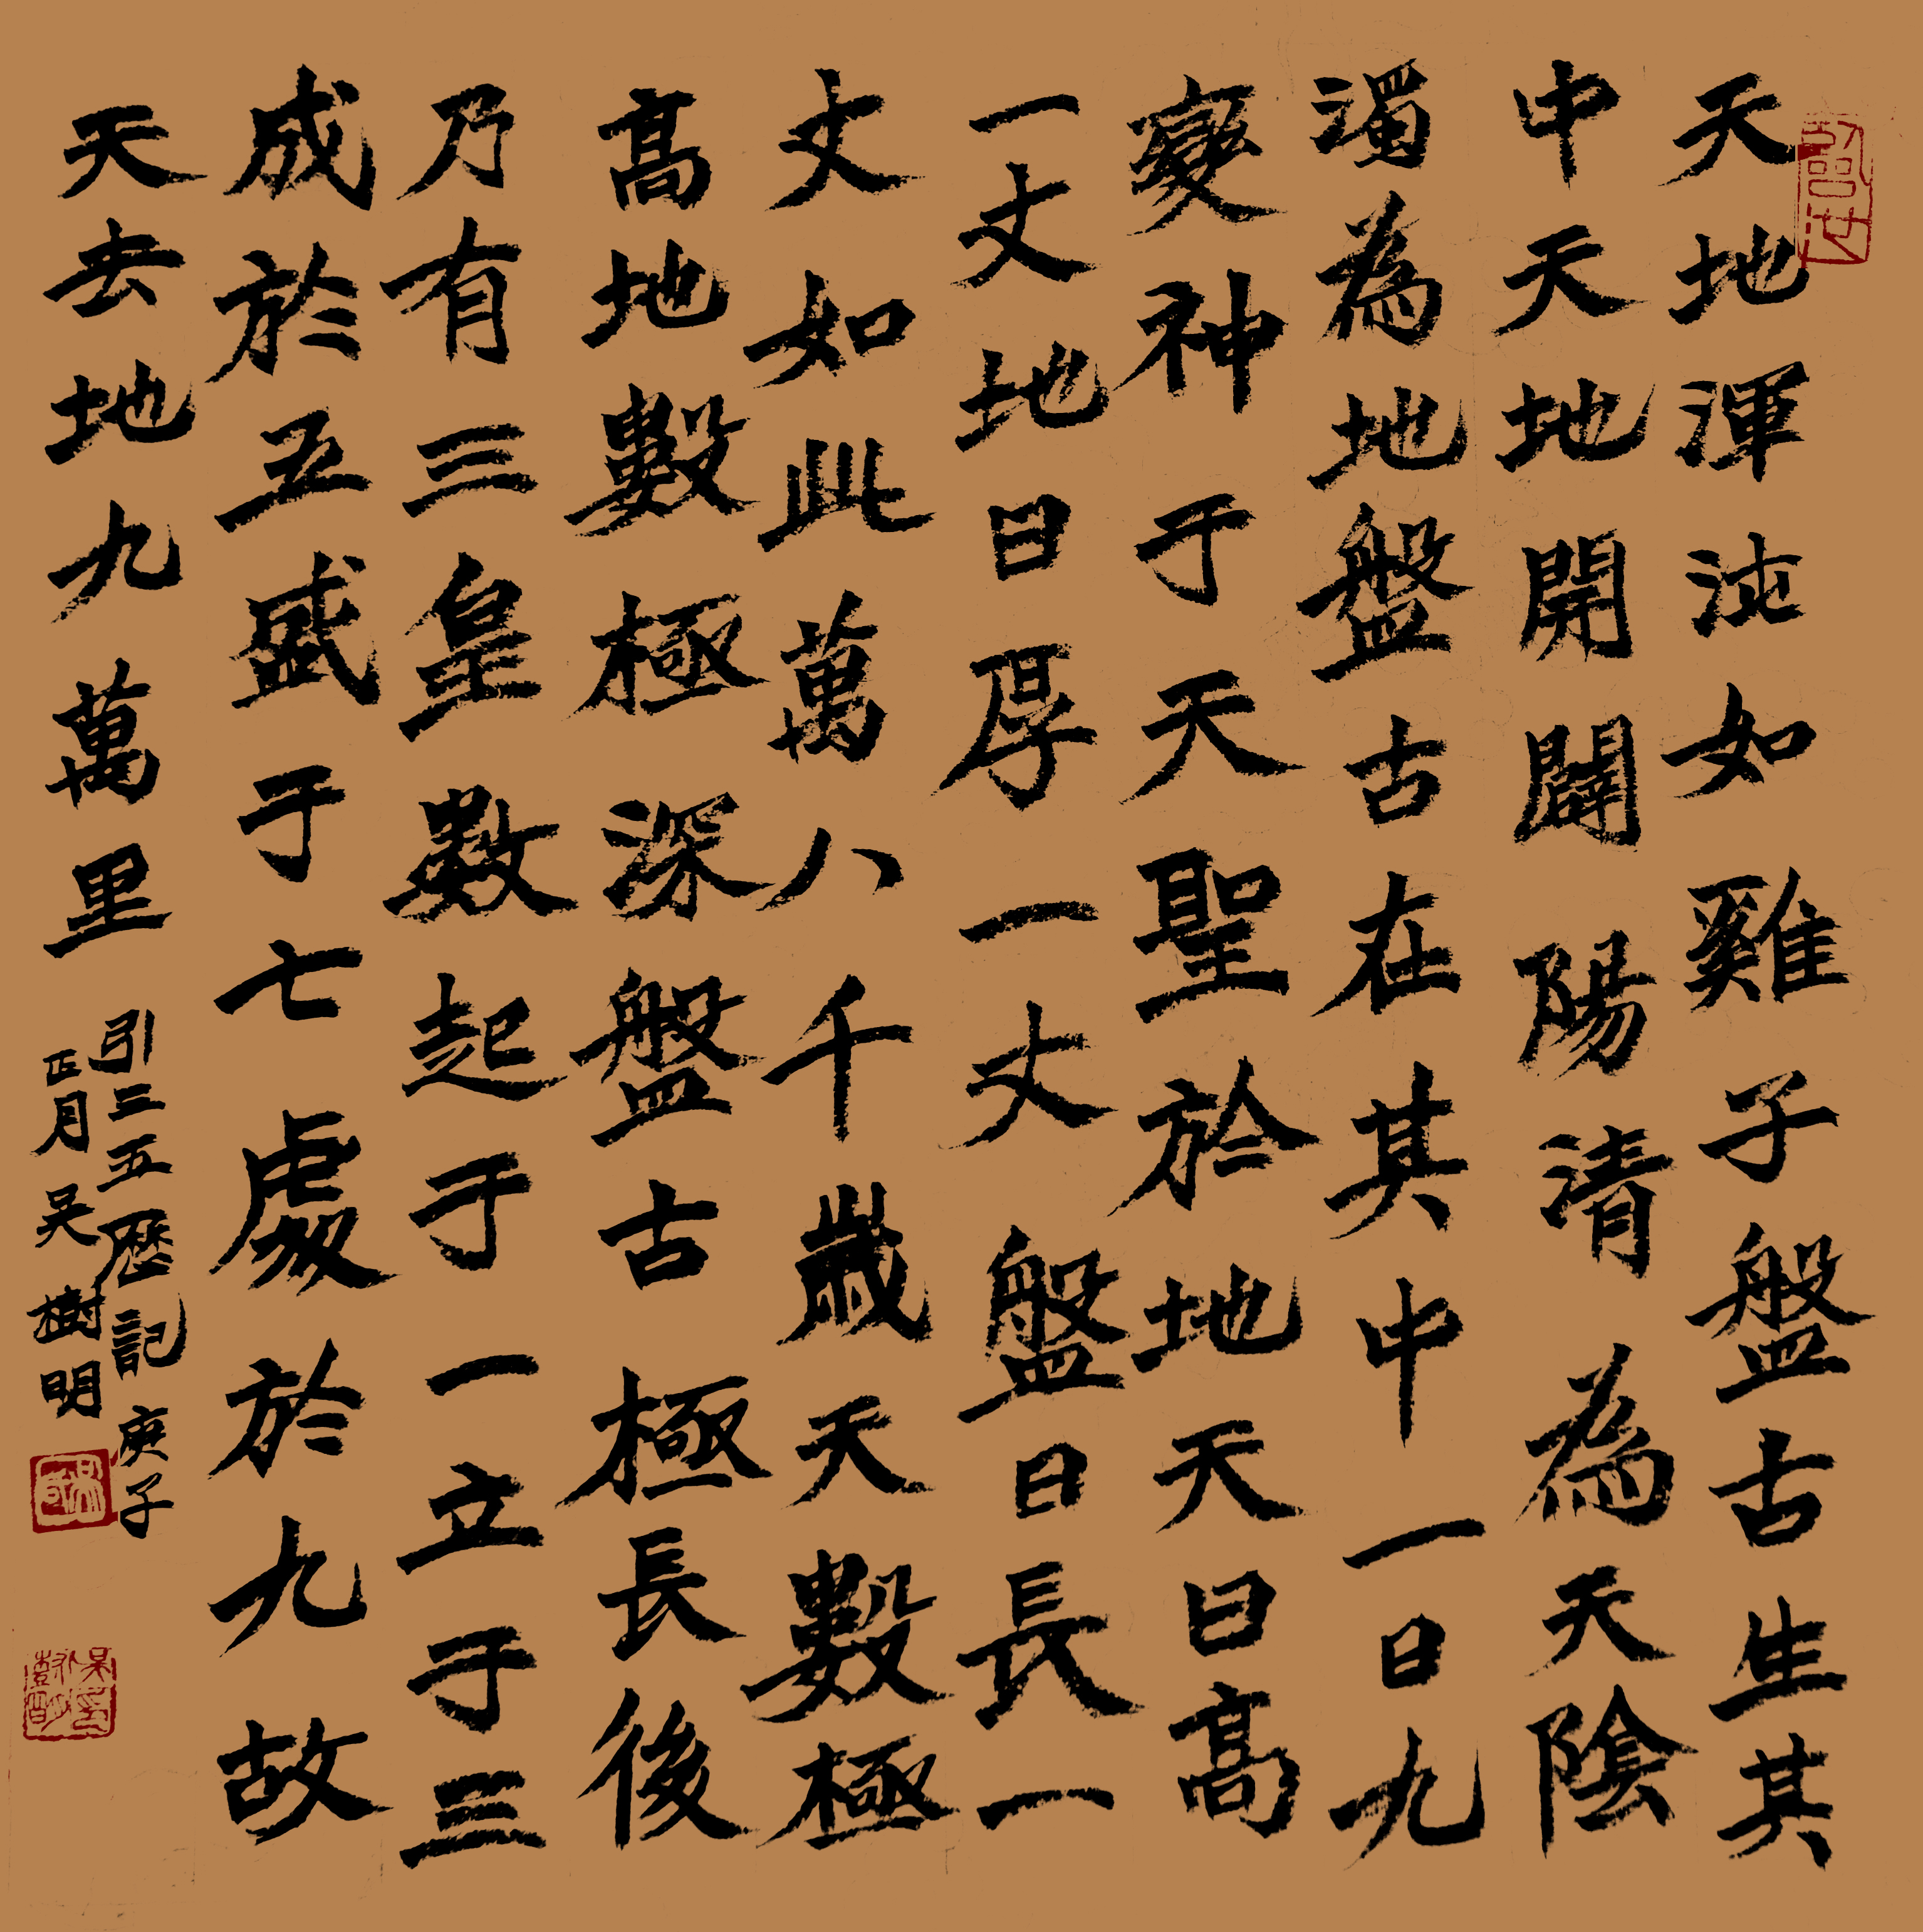 天地渾沌如雞子盤古生其
中天地開闢陽清為天陰
濁為地盤古在其中一日九
變神于天聖於地天日高
一丈地日厚一丈盤日長一
丈如此萬八千歲天數極
高地數極深盤古極長後
乃有三皇數起于一立于三
成於五盛于七處於九故
天去地九萬里
引三五歷記庚子
正月吳樹明